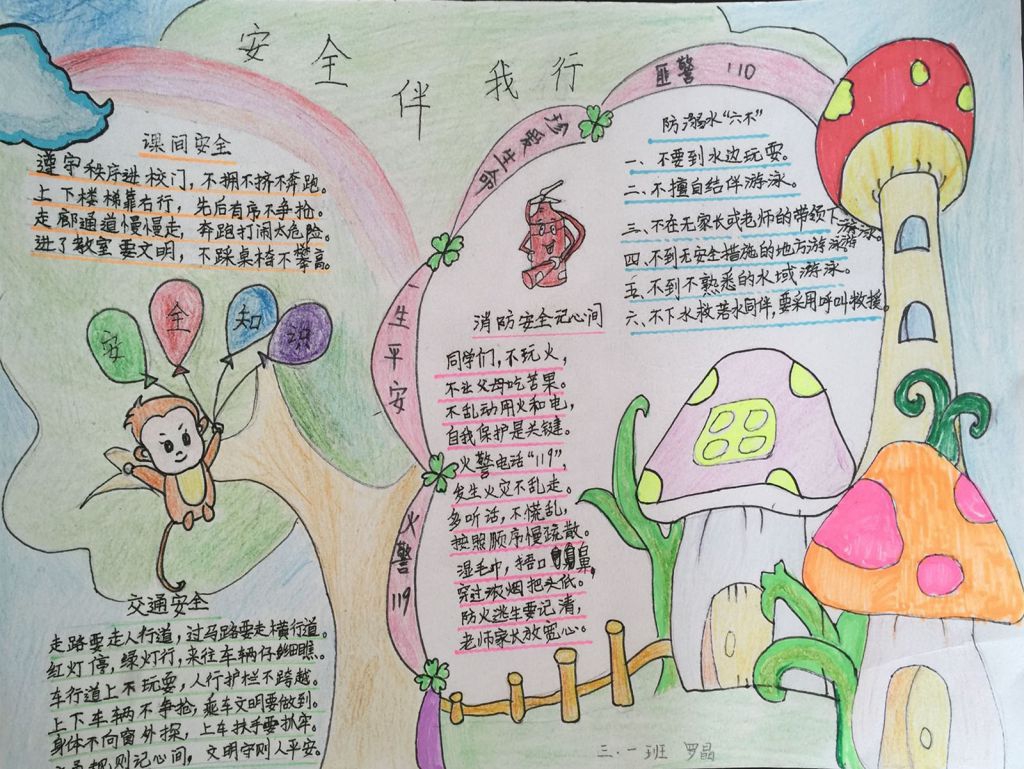 安全伴我行
课间安全
遵守秩序进校门，不拥不挤不奔跑。
上下楼梯靠右行，先后有序不争抢。
走廊通道慢慢走，奔跑打闹太危险。
进了教室要文明，不踩桌椅不攀高。
安全知识
交通安全
走路要走人行道，过马路要走横行道。
红灯停，绿灯行，来往车辆仔细瞧。
车行道上不玩耍，人行护栏不跨越。
上下车辆不争抢，乘车文明要做到。
身体不向窗外探，上车扶手要扒牢。
规则记心间，文明守则人平安。
匪警 110
珍爱生命
一生平安
火警 119
消防安全记心间
同学们，不玩火，
不让父母吃苦果。
不乱动用火和电，
自我保护是关键。
火警电话“119”，
发生火灾不乱走。
多听话，不慌乱，
按照顺序慢疏散。
湿毛巾，捂口鼻，
穿过浓烟把头低。
防火逃生要记清，
老师家长放宽心。
防溺水“六不”
一、不要到水边玩耍。
二、不擅自结伴游泳。
三、不在无家长或老师的带领下游泳。
四、不到无安全措施的地方游泳
五、不到不熟悉的水域游泳。
六、不下水救落水同伴，要采用呼叫救援。
三.一班 罗晶